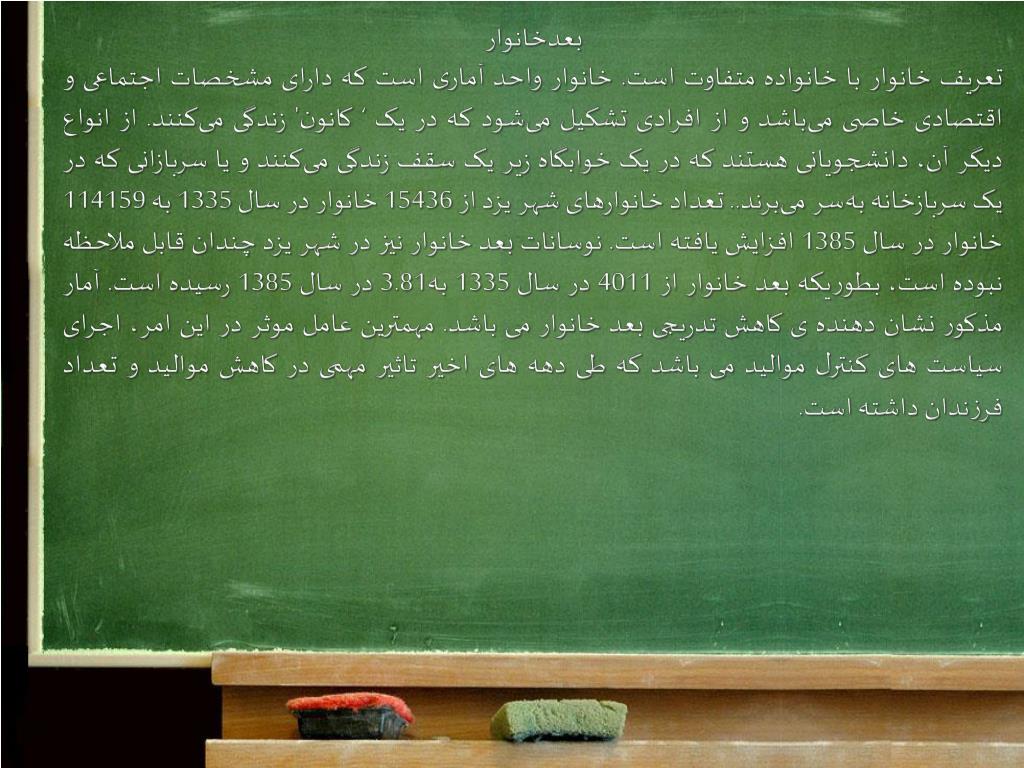 بعدخانوار
تعریف خانوار با خانواده متفاوت است. خانوار واحد آماری است که دارای مشخصات اجتماعی و
اقتصادی خاصی می‌باشد و از افرادی تشکیل می‌شود که در یک ‘ کانون' زندگی می‌کنند. از انواع
دیگر آن، دانشجویانی هستند که در یک خوابگاه زیر یک سقف زندگی می‌کنند و یا سربازانی که در
یک سربازخانه به‌سر می‌برند.. تعداد خانوارهای شهر یزد از 15436 خانوار در سال 1335 به 114159
خانوار در سال 1385 افزایش یافته است. نوسانات بعد خانوار نیز در شهر یزد چندان قابل ملاحظه
نبوده است، بطوریکه بعد خانوار از 4011 در سال 1335 به3.81 در سال 1385 رسیده است. آمار
مذکور نشان دهنده ی کاهش تدریجی بعد خانوار می باشد. مهمترین عامل موثر در این امر، اجرای
سیاست های کنترل موالید می باشد که طی دهه های اخیر تاثیر مهمی در کاهش موالید و تعداد
فرزندان داشته است.